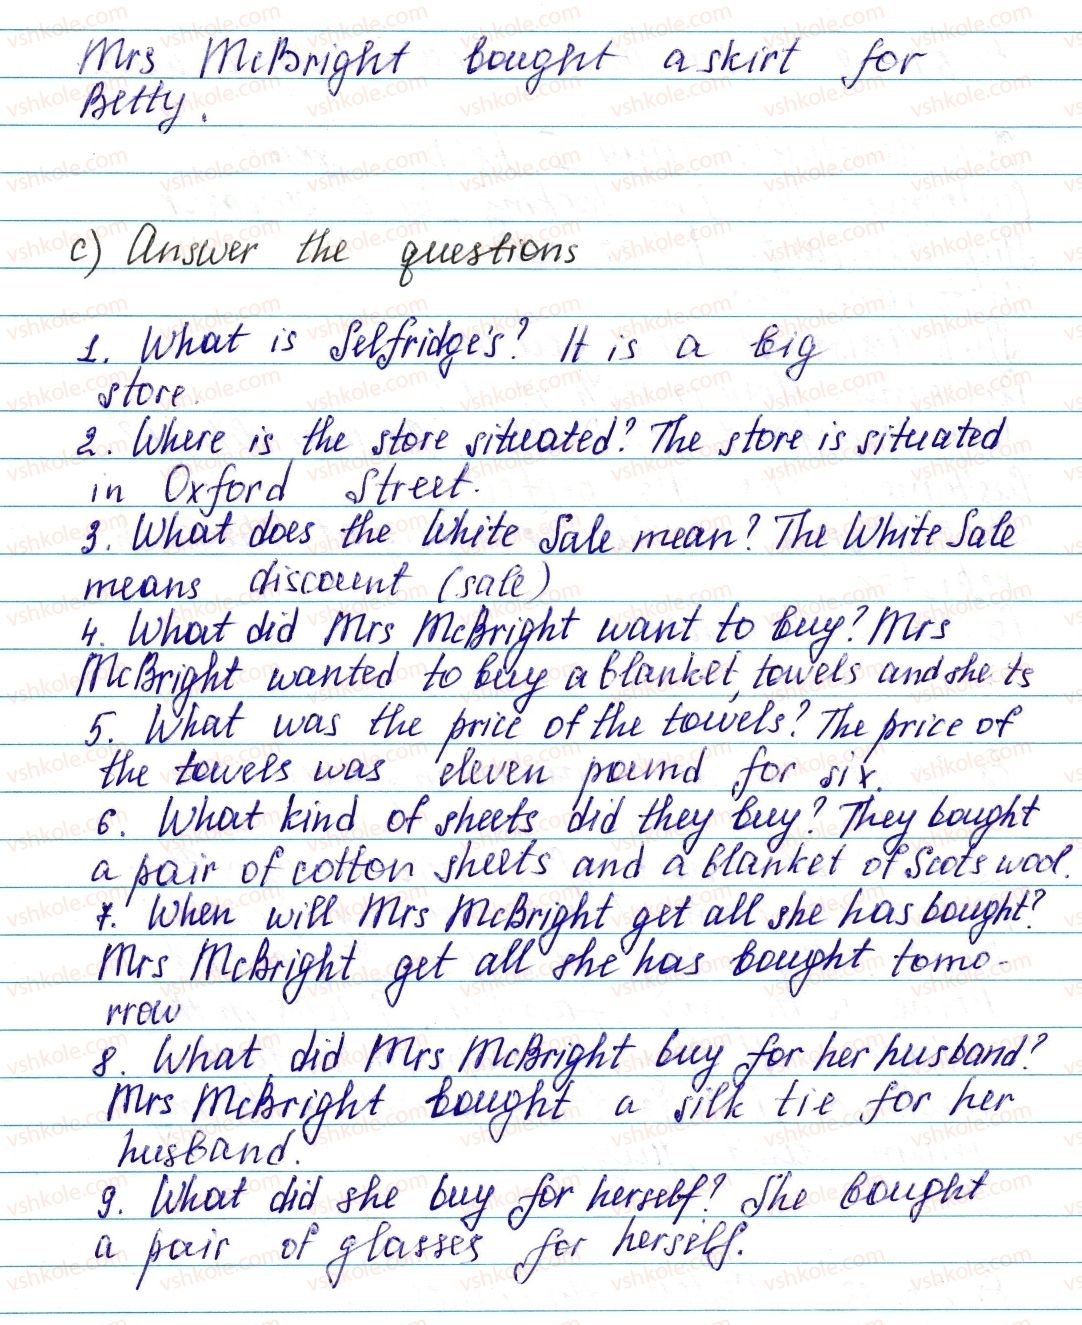 Mrs McBright bought a skirt for
Betty.
c) Answer the questions
1. What is Selfridge's? It is a big
store.
2. Where is the store situated? The store is situated
in Oxford Street.
3. What does the White Sale mean? The White Sale
means discount (sale)
4. What did Mrs McBright want to buy? Mrs
McBright wanted to buy a blanket, towels and sheets
5. What was the price of the towels? The price of
the towels was eleven pound for six.
6. What kind of sheets did they buy? They bought
a pair of cotton sheets and a blanket of Scots wool.
7. When will Mrs McBright get all she has bought?
Mrs McBright get all she has bought tomo-
rrow
8. What did Mrs McBright buy for her husband?
Mrs McBright bought a silk tie for her
husband.
9. What did she buy for herself? She bought
a pair of glasses for herself.